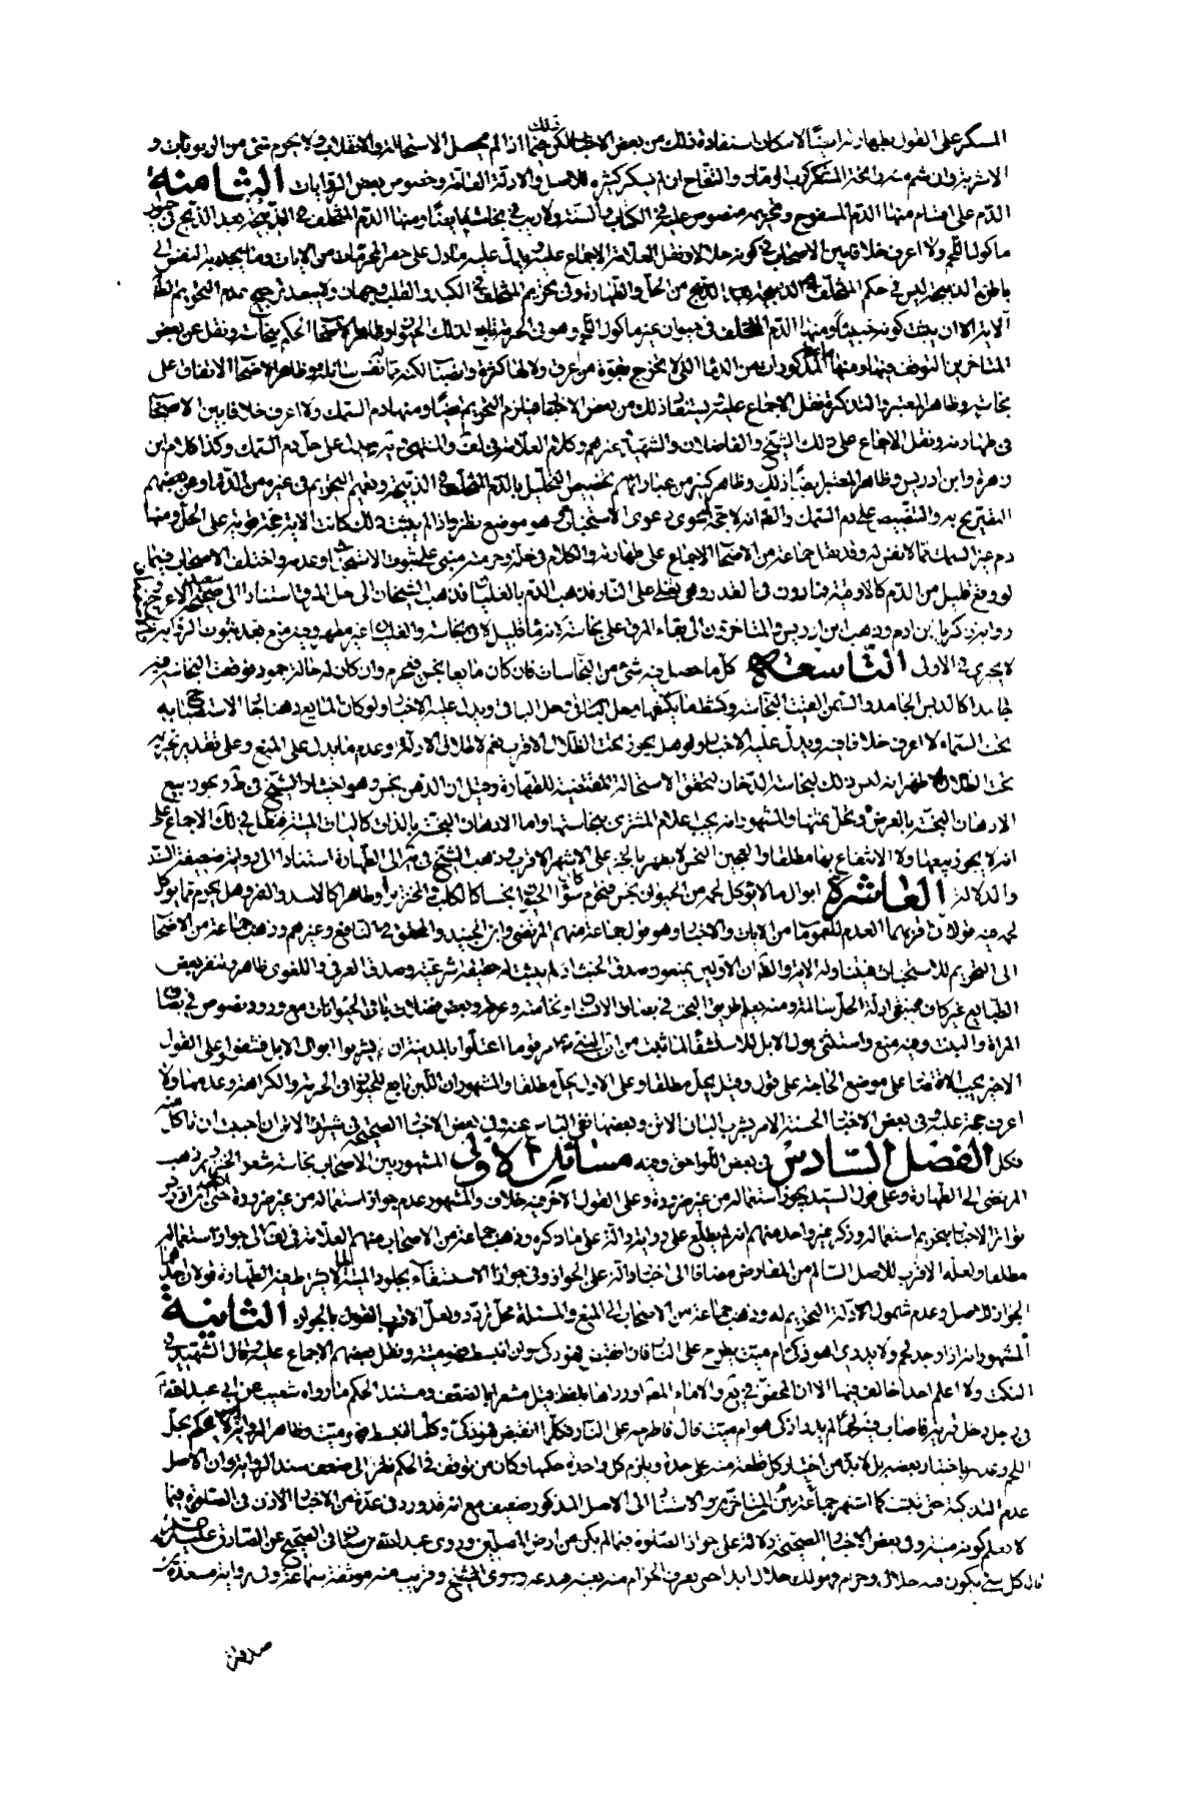 المسكر على القول بطهارته ايضًا لامكان استفادة ذلك من بعض الاخبار لكن حينئذ اذا لم يحصل الاستحالة والانقلاب ولا يحرم شئ من الربوبات و
الاشربة وان شم منه رائحة المسكر كرب الرمان والتفاح لان لم يسكر كثيره للاصل والادلة العامة وخصوص بعض الروايات الثامنة
الدم على اقسام منها الدم المسفوح وتحريمه منصوص عليه في الكتاب والسنة ولا ريب في نجاسته ايضًا ومنها الدم المتخلف في الذبيحة بعد الذبح في حيوان
ماكول اللحم ولا اعرف خلافا بين الاصحاب في كونه حلالا ونقل العلامة الاجماع عليه ويدل عليه ما دل على حصر المحرمات من الايات وما يجذبه النفس الى
باطن الذبيحة ليس في حكم المتخلف في الذبيحة الذبح من الحل والطهارة وفي تحريم المتخلف في الكبد والقلب وجهان ولا يبعد ترجيح عدم التحريم لظاهر
الاية الا ان يثبت كونه خبيثا ومنها الدم المتخلف في حيوان غير ماكول اللحم وهو في الحرمة تابع لذلك الحيوان وظاهر الاصحاب الحكم بنجاسته ونقل عن بعض
المتاخرين التوقف فيها ومنها المذكورات من الدماء التي لا تخرج بقوة من عرق ولا لها كثرة وانصباب لكنه مما له نفس سائلة وظاهر الاصحاب الاتفاق على
نجاسته وظاهر المعتبر والتذكرة نقل الاجماع عليه ويستفاد ذلك من بعض الاخبار فيلزم التحريم ايضًا ومنها دم السمك ولا اعرف خلافا بين الاصحاب
في طهارته ونقل الاجماع على ذلك الشيخ والفاضلان والشهيد وغيرهم وكلام العلامة في لف والمنتهى وتر يدل على حل دم السمك وكذا كلام ابن
زهرة وابن ادريس وظاهر المعتبر ايضًا ذلك وظاهر كثير من عباراتهم تخصيص التحليل بالدم المتخلف في الذبيحة وتعميم التحريم في غيره من الدماء وعن بعضهم
التصريح به والتنصيص على دم السمك والظاهر انه لا حجة لهم سوى دعوى الاستخباث وهو موضع نظر واذا لم يثبت ذلك كانت الاية حجة قوية على الحل ومنها
دم غير السمك مما لا نفس له وقد نقل جماعة من الاصحاب الاجماع على طهارته والكلام في حله وحرمته مبني على ثبوت الاستخباث وعدمه واختلف الاصحاب فيما
لو وقع قليل من الدم كالاوقية فما دون في القدر وهي تغلي على النار فذهب الدم بالغليان فذهب الشيخان الى حل المرق استنادا الى صحيحة سعيد الاعرج و
رواية زكريا بن ادم وذهب ابن ادريس والمتاخرون الى بقاء المرق على نجاسته
لا يجري في الاولى التاسعة كل ما حصل فيه شئ من النجاسات فان كان مايعا نجس فيحرم وان كان له حالة جمود فوقعت النجاسة فيه
جامدا كالدبس الجامد والسمن القيت النجاسة وكشط ما يكتنفها ويحل الباقي ويدل عليه الاخبار ولو كان المايع دهنا جاز الاستصباح به
تحت السماء لا اعرف خلافا فيه ويدل عليه الاخبار وهل يجوز تحت الظلال الاقرب نعم لاطلاق الادلة وعدم ما يدل على المنع وعلى تقدير تحريمه
تحت الظلال الاظهر انه ليس ذلك لنجاسة الدخان لتحقق الاستحالة المقتضية للطهارة وقيل ان الدهن نجس وهو اختيار الشيخ في ط ويجوز بيع
الادهان النجسة بالعرض ويحل ثمنها والمشهور انه يجب اعلام المشتري بنجاستها واما الادهان النجسة بالذات كاليات الميتة فظاهر ذلك الاجماع على
انه لا يجوز بيعها ولا الانتفاع بها مطلقا والعجين النجس لا يطهر بالخبز على الاشهر الاقرب وذهب الشيخ في يه الى الطهارة استنادا الى رواية ضعيفة السند
والدلالة العاشرة ابوال ما لا يؤكل لحمه من الحيوان نجس فيحرم سواء كان الحيوان نجسا كالكلب والخنزير او طاهرا كالاسد والنمر وهل يحرم مما يؤكل
لحمه فيه قولان اقربهما العدم للعمومات من الايات والاخبار وهو قول جماعة منهم المرتضى وابن الجنيد والمحقق في النافع وغيرهم وذهب جماعة من الاصحاب
الى التحريم للاستخباث فيتناوله الاية والظاهر ان الاولين يمنعون صدق الخبث اذ لم يثبت له حقيقة شرعية وصدق العرفي واللغوي ظاهرا وتنفر بعض
الطبايع غير كاف فيبقى ادلة الحل سالمة ومنه يعلم طريق البحث في بصاق الانسان ونخامته وعرقه وبعض فضلات باقي الحيوانات مع ورود نصوص في بصاق
المراة والبنت وفيه منع واستثنى بول الابل للاستشفاء لما ثبت من ان النبي ص امر قوما اعتلوا بالمدينة ان يشربوا ابوال الابل فشفوا وعلى القول
الاخير يجب الاقتصار على موضع الحاجة على قول وقيل يحل مطلقا وعلى الاول يحل مطلقا والمشهور ان اللبن تابع للحيوان في الحرمة والكراهة وعدمهما ولا
اعرف حجة عليه وفي بعض الاخبار الحسنة الامر بشرب البان الاتن وبعضها نفي الباس عنه وفي بعض الاخبار الصحيحة في شيراز الاتن ان احببت ان تاكل منه
فكل الفصل السادس في بعض اللواحق وفيه مسائل الاولى المشهور بين الاصحاب نجاسة شعر الخنزير وذهب
المرتضى الى الطهارة وعلى قول السيد يجوز استعماله من غير ضرورة وعلى القول الاخر فيه خلاف والمشهور عدم جواز استعماله من غير ضرورة حتى ان ابن ادريس ادعى
تواتر الاخبار بتحريم استعماله وذكر غير واحد منهم انه لم يطلع على رواية دالة على ما ذكره وذهب جماعة من الاصحاب منهم العلامة في لف الى جواز استعماله
مطلقا ولعله الاقرب للاصل السالم من المعارض مضافا الى اخبار دالة على الجواز وفي جواز الاستقاء بجلود الميتة لما لا يشترط فيه الطهارة قولان احدهما
الجواز للاصل وعدم شمول الادلة التحريم له وذهب جماعة من الاصحاب الى المنع والمسئلة محل تردد ولعل الاقرب القول بالجواز الثانية
المشهور انه اذا وجد لحم ولا يدرى اهو ذكي ام ميت يطرح على النار فان انقبض فهو ذكي وان انبسط فهو ميتة ونقل بعضهم الاجماع عليه وقال الشهيد في
النكت ولا اعلم احدا خالف فيها الا ان المحقق في يع والامام المص اورداها بلفظ قيل مشعرا بالضعف ومستند الحكم ما رواه شعيب عن ابي عبد الله ع
في رجل دخل قرية فاصاب فيها لحمًا لم يدر اذكي هو ام ميت قال فاطرحه على النار فكلما انقبض فهو ذكي وكلما انبسط فهو ميت وظاهر الرواية انه لا يحكم بحل
اللحم وعدمه باختبار بعضه بل لا بد من اختبار كل قطعة منه على حدة ويلزم كل واحدة حكمها وكان من توقف في الحكم نظر الى ضعف سند الرواية وان الاصل
عدم التذكية حتى يثبت كما اشتهر جماعة بين المتاخرين والاستناد الى الاصل المذكور ضعيف مع انه قد ورد في عدة من الاخبار الاذن في الصلوة فيما
لا يعلم كونه ميتة وفي بعض الاخبار الصحيحة دلالة على جواز الصلوة فيما لم يكن من ارض المصلين وروى عبد الله بن سنان في الصحيح عن الصادق عليه السلام
قال كل شئ يكون فيه حلال وحرام فهو لك حلال ابدا حتى تعرف الحرام منه بعينه فتدعه وروى الشيخ وقريب منه موثقة سماعة وفي رواية مسعدة بن
صدقة